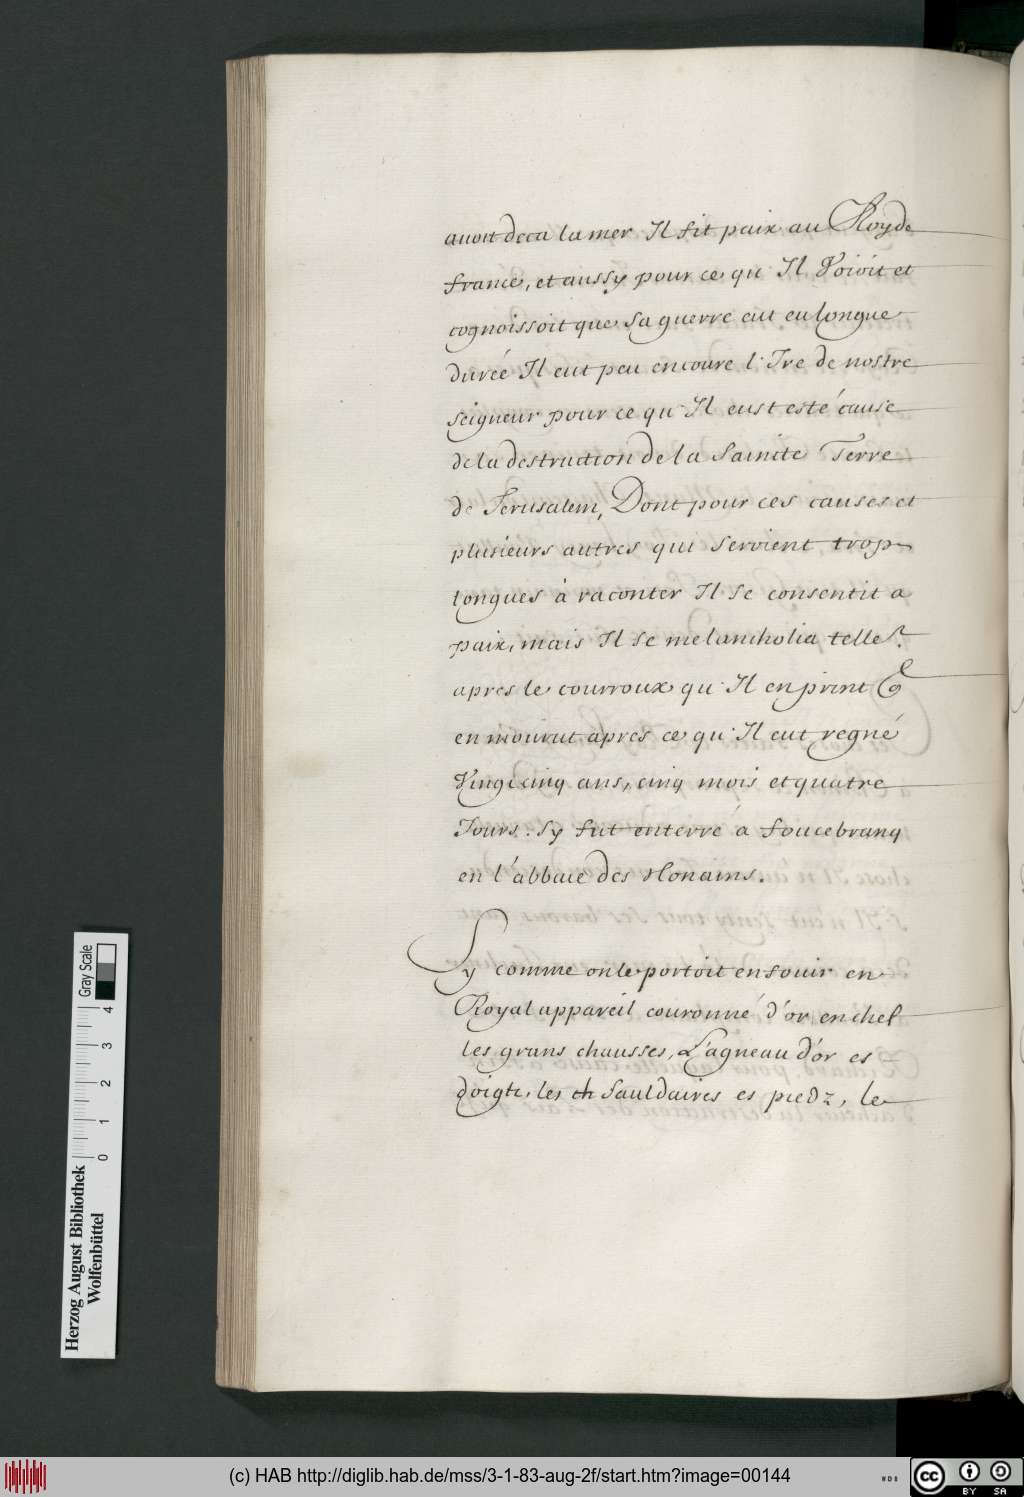 avoit deca la mer Il fit paix au Roy de
france, et aussy pour ce qu'Il Voioit et
cognoissoit que sa guerre eut eu longue
durée Il eut peu encoure l'Ire de nostre
seigneur pour ce qu'Il eust esté cause
de la destruction de la Saincte Terre
de Jerusalem, Dont pour ces causes et
plusieurs autres qui seroient trop
longues à raconter Il se consentit a
paix, mais Il se melancholia telle.t
apres le courroux qu'Il en print
en mourut apres ce qu'Il eut regné
Vingt cinq ans, cinq mois et quatre
Jours. Sy fut enterré a foucebranq
en l'abbaie des Nonains.
Sy comme on le portoit ensouir en
Royal appareil couronné d'or en chef
les grans chausses, L'agneau d'or es
doigts, les th Sauldaires es piedz, le
Herzog August Bibliothek
Wolfenbüttel
0 1 2 3 4 Gray Scale
(c) HAB http://diglib.hab.de/mss/3-1-83-aug-2f/start.htm?image=00144
WDB
cc BY SA